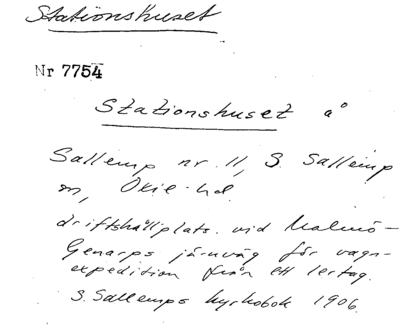 Stationshuset
Nr 7754
Stationshuset å
Sallerup nr. 11, S Sallerup
sn, Oxie hd.
driftshållplats. vid Malmö-
Genarps järnväg för vagn-
expedition från ett lertag.
S. Sallerups kyrkobok 1906.